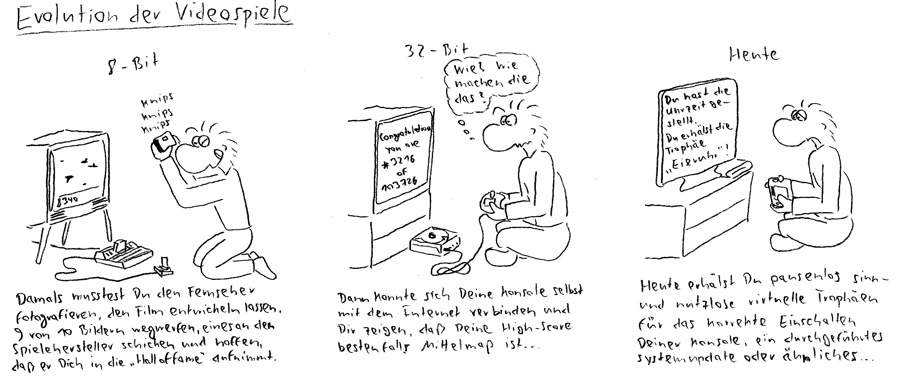 Evolution der Videospiele
8-Bit
knips
knips
knips
8340
Damals musstest Du den Fernseher
fotografieren, den Film entwickeln lassen,
9 von 10 Bildern wegwerfen, eines an den
Spielehersteller schicken und hoffen,
daß er Dich in die „Hall of Fame" aufnimmt.
32-Bit
Wie? Wie
machen die
das?
Congratulation
you are
#3216
of
103726
Dann konnte sich Deine Konsole selbst
mit dem Internet verbinden und
Dir zeigen, daß Deine High-Score
bestenfalls Mittelmaß ist...
Heute
Du hast die
Uhrzeit ge-
stellt.
Du erhälst die
Trophäe
„Eieruhr"!
Heute erhälst Du pausenlos sinn-
und nutzlose virtuelle Trophäen
für das korrekte Einschalten
Deiner Konsole, ein durchgeführtes
Systemupdate oder ähnliches...